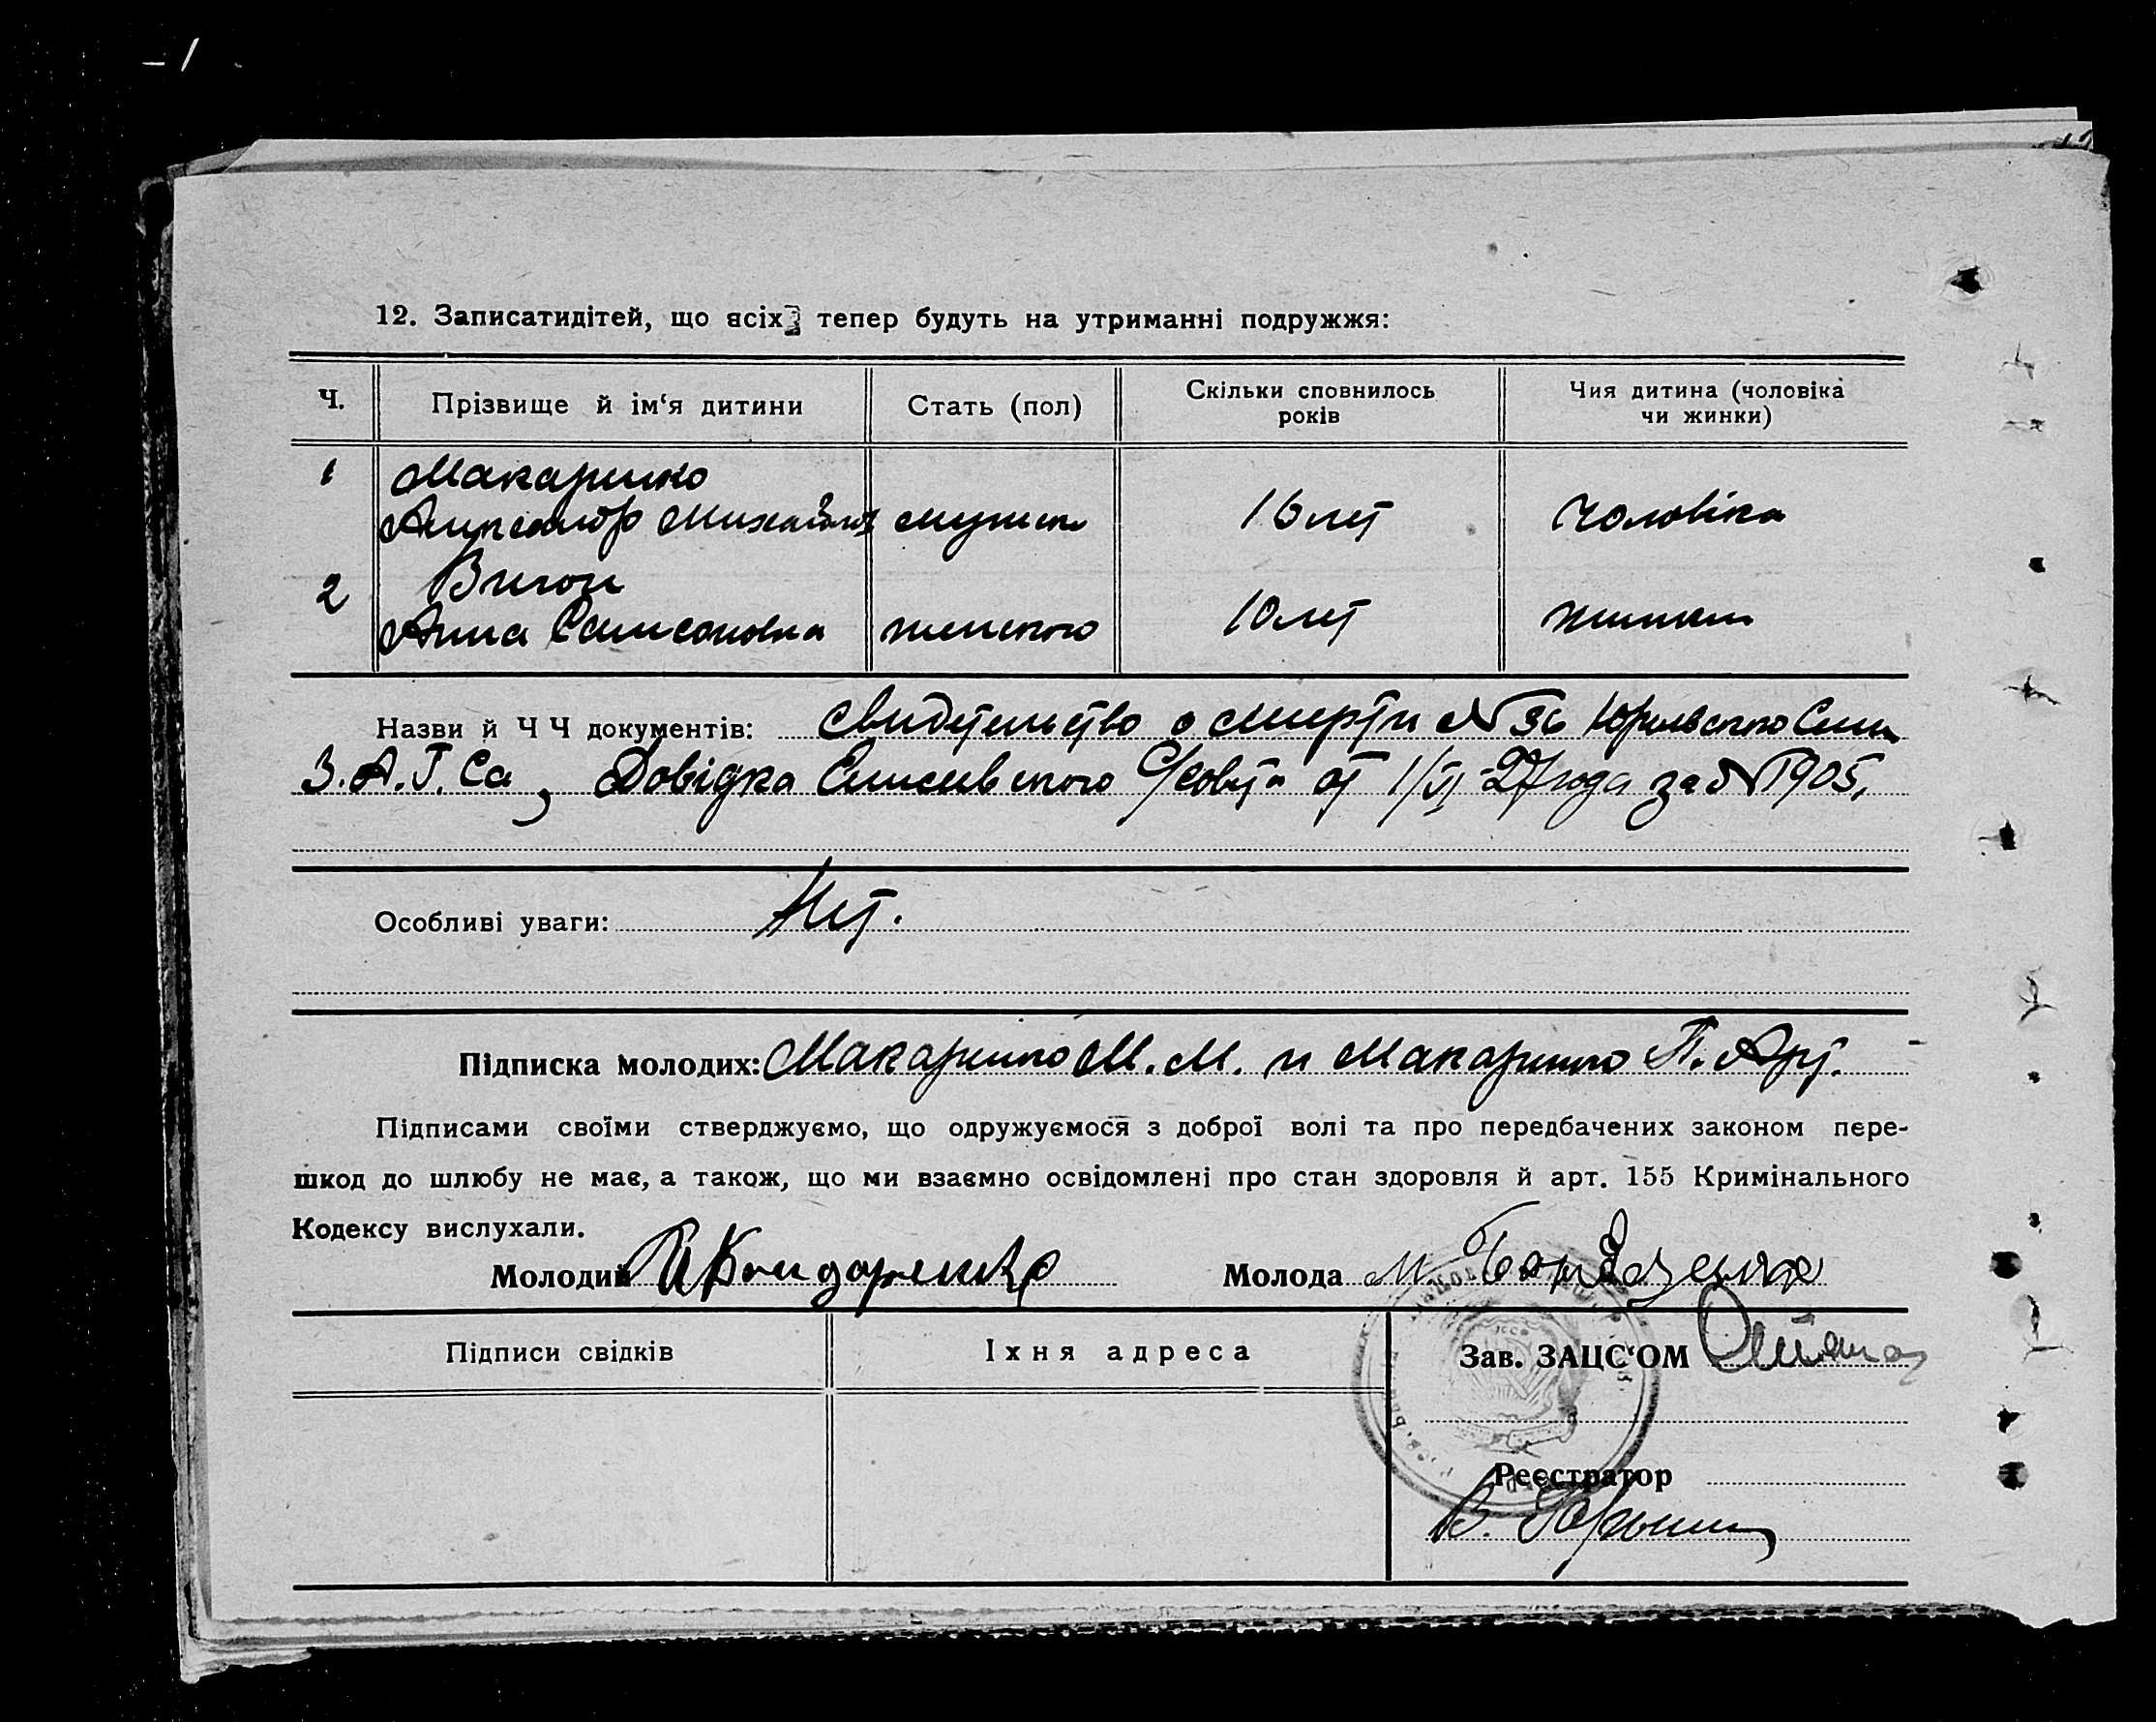 12. Записатидітей, що всіх тепер будуть на утриманні подружжя:
Ч. Прізвище й ім‘я дитини Стать (пол) Скільки сповнилось років Чия дитина (чоловіка чи жинки)
1 Макаренко
Александр Михайлов мужск 16 лет чоловіка
2
Анна Самсоновна женского 10 лет жинки
Назви й Ч Ч документів: Свидетельство о смерти N 36
З.А.Г.Са, Довідка С/совета от 1/VI-27 года за N 1905.
Особливі уваги: Нет.
Підписка молодих: Макаренко М.М. и Макаренко П. Арт.
Підписами своїми стверджуємо, що одружуємося з доброї волі та про передбачених законом пере-
шкод до шлюбу не має, а також, що ми взаємно освідомлені про стан здоровля й арт. 155 Кримінального
Кодексу вислухали.
Молодий Бондаренко Молода
Підписи свідків Їхня адреса Зав. ЗАЦС‘ОМ
Реєстратор
В.